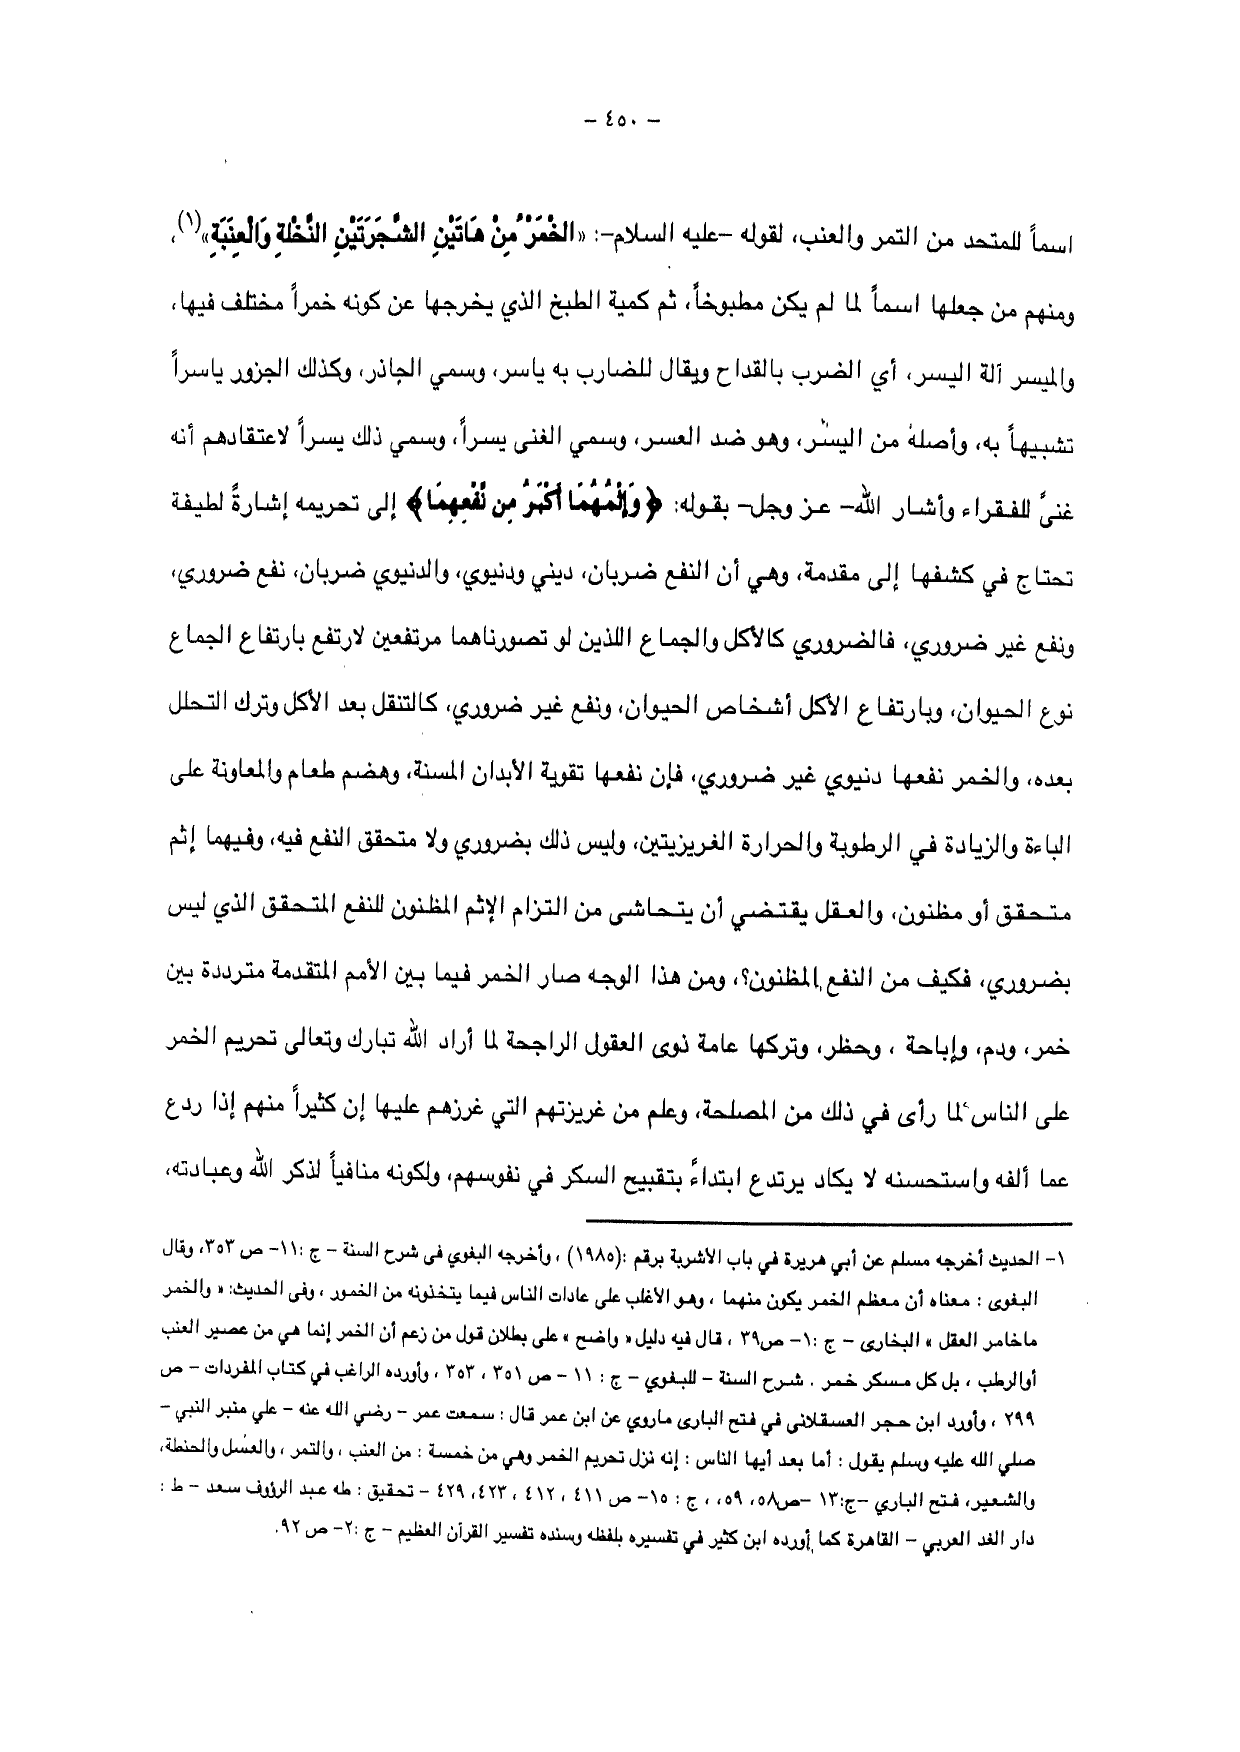 – ٤٥٠ –
اسماً للمتحد من التمر والعنب، لقوله –عليه السلام–: «الخَمْرُ مِنْ هَاتَيْنِ الشَّجَرَتَيْنِ النَّخْلَةِ وَالْعِنَبَةِ»(١)،
ومنهم من جعلها اسماً لما لم يكن مطبوخاً، ثم كمية الطبخ الذي يخرجها عن كونه خمراً مختلف فيها،
والميسر آلة اليسر، أي الضرب بالقداح ويقال للضارب به ياسر، وسمي الجاذر، وكذلك الجزور ياسراً
تشبيهاً به، وأصله من اليسْر، وهو ضد العسر، وسمي الغنى يسراً، وسمي ذلك يسراً لاعتقادهم أنه
غنىً للفقراء وأشار الله– عز وجل– بقوله: ﴿وَإِثْمُهُمَا أَكْبَرُ مِن نَّفْعِهِمَا﴾ إلى تحريمه إشارةً لطيفة
تحتاج في كشفها إلى مقدمة، وهي أن النفع ضربان، ديني ودنيوي، والدنيوي ضربان، نفع ضروري،
ونفع غير ضروري، فالضروري كالأكل والجماع اللذين لو تصورناهما مرتفعين لارتفع بارتفاع الجماع
نوع الحيوان، وبارتفاع الأكل أشخاص الحيوان، ونفع غير ضروري، كالتنقل بعد الأكل وترك التحلل
بعده، والخمر نفعها دنيوي غير ضروري، فإن نفعها تقوية الأبدان المسنة، وهضم طعام والمعاونة على
الباءة والزيادة في الرطوبة والحرارة الغريزيتين، وليس ذلك بضروري ولا متحقق النفع فيه، وفيهما إثم
متحقق أو مظنون، والعقل يقتضي أن يتحاشى من التزام الإثم المظنون للنفع المتحقق الذي ليس
بضروري، فكيف من النفع المظنون؟، ومن هذا الوجه صار الخمر فيما بين الأمم المتقدمة مترددة بين
خمر، ودم، وإباحة ، وحظر، وتركها عامة ذوى العقول الراجحة لما أراد الله تبارك وتعالى تحريم الخمر
على الناس لما رأى في ذلك من المصلحة، وعلم من غريزتهم التي غرزهم عليها إن كثيراً منهم إذا ردع
عما ألفه واستحسنه لا يكاد يرتدع ابتداءً بتقبيح السكر في نفوسهم، ولكونه منافياً لذكر الله وعبادته،
١– الحديث أخرجه مسلم عن أبي هريرة في باب الأشربة برقم :(١٩٨٥) ، وأخرجه البغوي فى شرح السنة – ج :١١– ص ٣٥٣، وقال
البغوى : معناه أن معظم الخمر يكون منهما ، وهو الأغلب على عادات الناس فيما يتخذونه من الخمور ، وفى الحديث: « والخمر
ماخامر العقل » البخارى – ج :١– ص٣٩ ، قال فيه دليل« واضح » على بطلان قول من زعم أن الخمر إنما هي من عصير العنب
أوالرطب ، بل كل مسكر خمر . شرح السنة – للبغوي – ج : ١١ – ص ٣٥١ ، ٣٥٣ ، وأورده الراغب في كتاب المفردات – ص
٢٩٩ ، وأورد ابن حجر العسقلانى في فتح البارى ماروي عن ابن عمر قال : سمعت عمر – رضي الله عنه – علي منبر النبي –
صلي الله عليه وسلم يقول : أما بعد أيها الناس : إنه نزل تحريم الخمر وهي من خمسة : من العنب ، والتمر ، والعسل والحنطة،
والشعير، فتح الباري –ج:١٣ –ص٥٨، ٥٩، ، ج : ١٥– ص ٤١١ ، ٤١٢ ، ٤٢٣، ٤٢٩ – تحقيق : طه عبد الرؤوف سعد – ط :
دار الغد العربي – القاهرة كما أورده ابن كثير في تفسيره بلفظه وسنده تفسير القرآن العظيم – ج :٢– ص ٩٢.